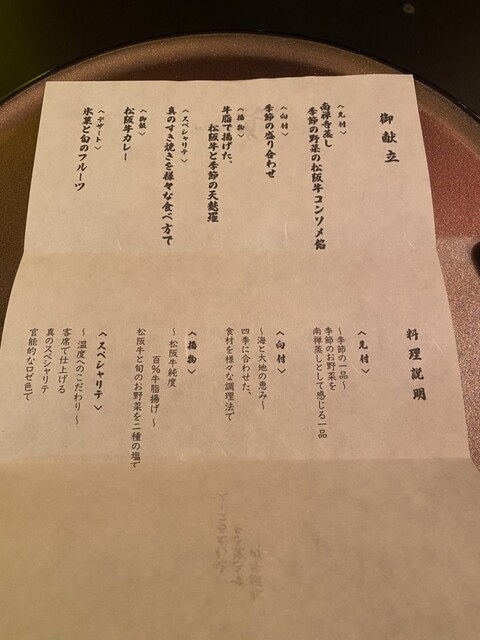 御献立
〈先付〉
南禅寺蒸し
季節の野菜の松阪牛コンソメ餡
〈向付〉
季節の盛り合わせ
〈揚物〉
牛脂で揚げた、
松阪牛と季節の天麩羅
〈スペシャリテ〉
真のすき焼きを様々な食べ方で
〈御飯〉
松阪牛カレー
〈デザート〉
氷菓と旬のフルーツ
料理説明
〈先付〉
～季節の一品～
季節のお野菜を
南禅蒸しとして感じる一品
〈向付〉
～海と大地の恵み～
四季に合わせた、
食材を様々な調理法で
〈揚物〉
～松阪牛純度
百%牛脂揚げ～
松阪牛と旬のお野菜を二種の塩で
〈スペシャリテ〉
～温度へのこだわり～
客席で仕上げる
真のスペシャリテ
官能的なロゼ色で